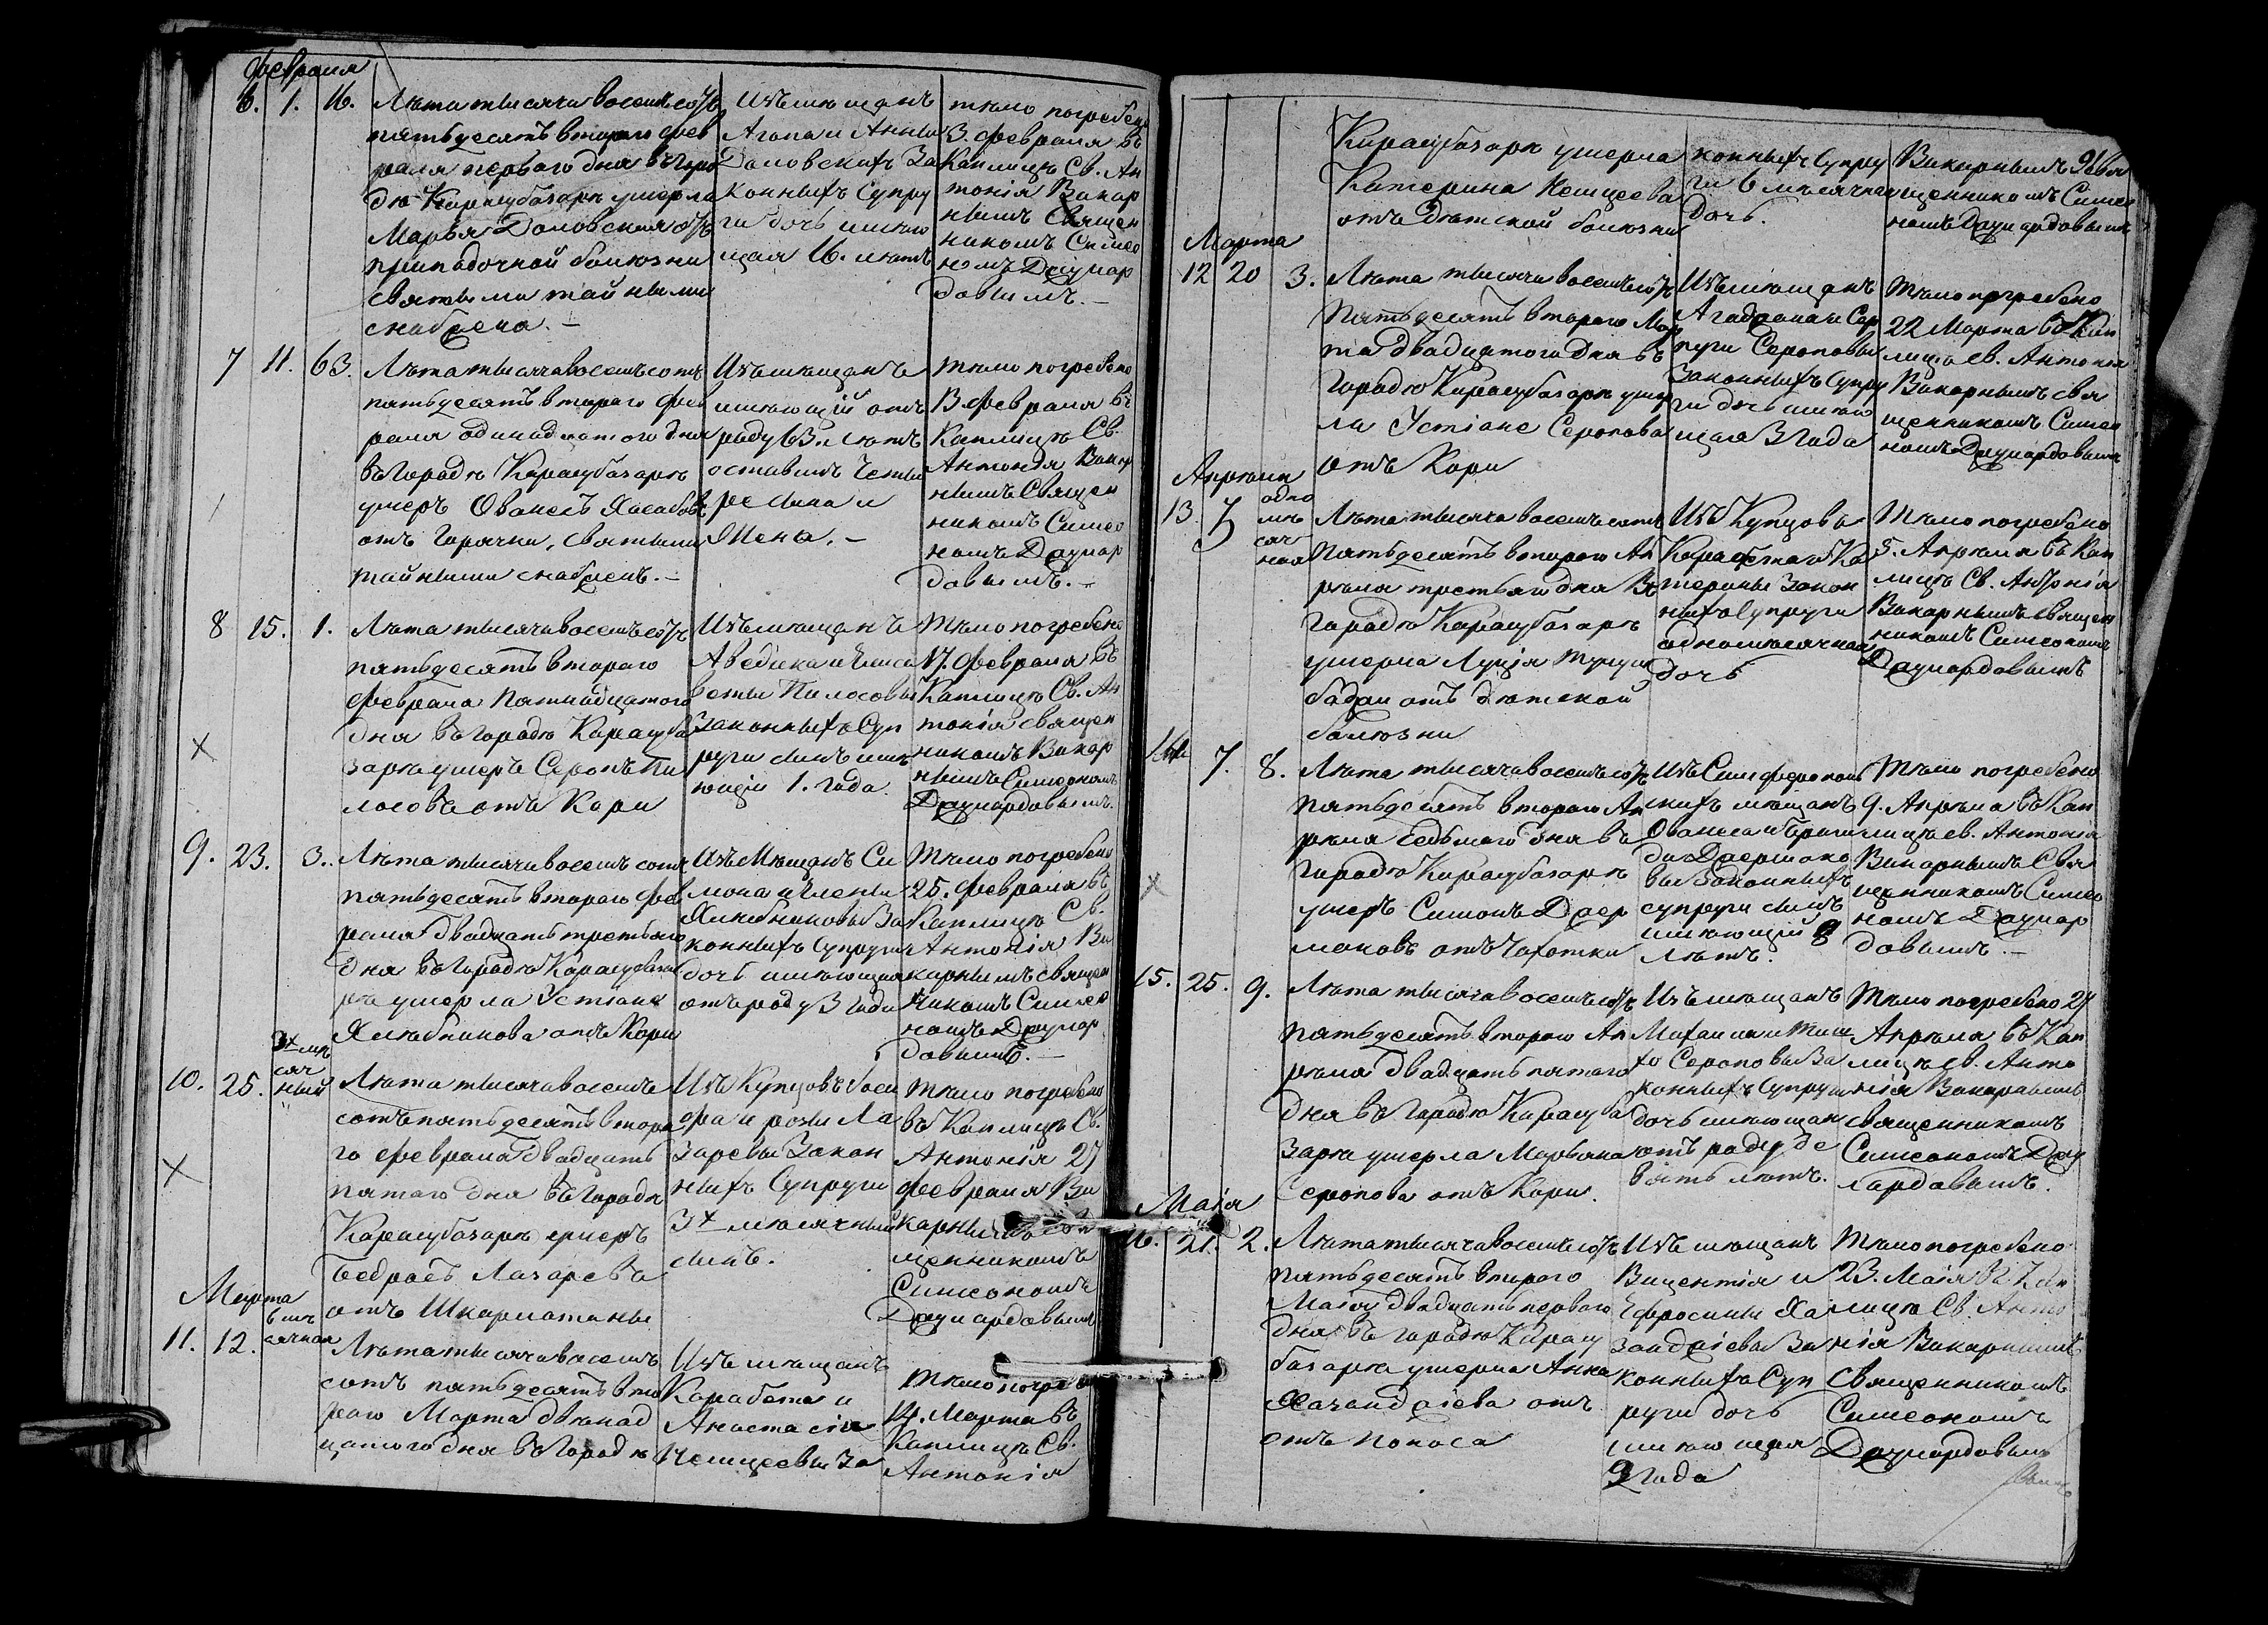 Февраля
6. 1. 16.
Лѣта тысяча восемьсотъ
пятьдесятъ втораго фев
раля перваго дня въ Горо
дѣ Карасубазарѣ умерла
Марья Доловская отъ
припадочной болюзни
святыми тайными
снабдена. –
Изъ мющанъ
Агопа и Анны
Доловскихъ За
конныхъ Супру
ги дочь имѣю
щая 16. лютъ
тѣло погребено
3. Февраля въ
Каплицѣ Св. Ан
тонія Викар
нымъ Священ
никомъ Симео
номъ
довымъ. –
7 11. 63.
Лѣта тысяча восемьсотъ
пятьдесятъ втораго Фев
раля одинадцатого дня
въ Городѣ Карасубазарѣ
умеръ Ованесъ Хасабовъ
отъ Горячки, Святыми
тайными снабденъ. –
Изъ мющанъ
имѣющій отъ
роду 63. лютъ
оставилъ четы
ре сына и
Жена. –
тѣло погребено
13 февраля въ
Каплицѣ Св.
Антонія Викар
нымъ Священ
никомъ Симео
номъ
довымъ. –
8 15. 1.
Лѣта тысяча восемьсотъ
пятьдесятъ втораго
февраля Пятнадцатого
дня въ Городѣ Карасуба
зарѣ умеръ Серопъ Пи
лосовъ отъ Кори
Изъ мющанъ
Аведика и Елиса
веты Пилосовы
Законныхъ Суп
руги сынъ имѣ
ющій 1. года.
Тѣло погребено
17. Февраля въ
Каплицѣ Св. Ан
тонія священ
никомъ Викар
нымъ Симеономъ
9. 23. 3.
Лѣта тысяча восемь сотъ
пятьдесятъ втораго Фев
раля двадцать третьяго
дня въ Городѣ Карасубаза
рѣ умерла Устіане
Хлюбникова отъ Кори
Изъ Мющанъ Си
мона и Елены
Хлюбниковы За
конныхъ Супруги
дочь имѣющая
отъ роду 3 года
Тѣло погребено
25. Февраля въ
Каплицѣ Св.
Антонія Ви
карнымъ священ
никомъ Симео
номъ
довымъ. –
10. 25. 3х мѣ
сяч
ный
Лѣта тысяча восемь
сотъ пятьдесятъ втора
го февраля двадцать
пятаго дня въ Городѣ
Карасубазарѣ умеръ
Бедросъ Лазаревъ
отъ Шкарлатины
Изъ Купцовъ
и розы Ла
заревы Закон
ныхъ Супруги
3х мюсячный
сынъ.
тѣло погребено
въ Каплицѣ Св.
Антонія 27
февраля Ви
карнымъ Свя
щенникомъ
Симеономъ
Марта
11. 12. 6 мѣ
сячная
Лѣта тысяча восемь
сотъ пятьдесятъ вто
раго Марта двюнад
цатого дня въ Городѣ
Изъ мющанъ
Карабета и
Анастасія
За
тѣло погреб
14. Марта въ
Каплицѣ Св.
Антонія
Карасубазарѣ умерла
Катерина
отъ дютской болюзни
конныхъ Супру
ги 6 мюсячная
дочь.
Викарнымъ Свя
щенникомъ Симео
номъ
Марта
12 20 3.
Лѣта тысяча восемьсотъ
Пятьдесятъ втораго Мар
та двадцатого дня въ
Городѣ Карасубазарѣ умер
ла Устіане Серопова
отъ Кори
Изъ мющанъ
и Сар
Сероповы
Законныхъ Супру
ги дочь имѣю
щая 3 года
Тѣло погребено
22 Марта въ Кап
лицѣ св. Антонія
Викарнымъ свя
щенникомъ Симео
номъ
Апрѣля
13. 3 одно
мѣ
сяч
ная
Лѣта тысяча восемьсотъ
пятьдесятъ втораго Ап
рѣля третьяго дня въ
Городѣ Карасубазарѣ
умерла Луція
отъ дютской
болюзни
Изъ Купцовъ
Ка
терины Закон
ныхъ Супруги
одномюсячная
дочь
Тѣло погребено
5. Апрѣля въ Кап
лицѣ Св. Антонія
Викарнымъ священ
никомъ Симеономъ
14 7. 8.
Лѣта тысяча восемьсотъ
пятьдесятъ втораго Ап
рѣля седьмого дня въ
Городѣ Карасубазарѣ
умеръ Симонъ
отъ Чахотки
Изъ Симферополь
скихъ мющанъ
Ованеса и
Законныхъ
супруги сынъ
имѣющій 8
лютъ.
Тѣло погребено
9. Апрѣля въ Кап
лицѣ св. Антонія
Викарнымъ Свя
щенникомъ Симео
номъ
довымъ. –
15. 25. 9.
Лѣта тысяча восемьсотъ
пятьдесятъ втораго Ап
рѣля двадцать пятаго
дня въ Городѣ Карасуба
зарѣ умерла Марьяна
Серопова отъ Кори.
Изъ мющанъ
Сероповы За
конныхъ Супруги
дочь имѣющая
отъ роду де
вять лютъ.
Тѣло погребено 27
Апрѣля въ Кап
лицѣ св. Анто
нія Викарнымъ
священникомъ
Симеономъ
Маія
16. 21. 2.
Лѣта тысяча восемьсотъ
пятьдесятъ втораго
Маія двадцать перваго
дня въ городѣ Карасу
базарѣ умерла Анна
отъ
отъ поноса
Изъ мющанъ
Вицентія и
Ефросиньи
За
конныхъ Суп
руги дочь
имѣющая
2 года
Тѣло погребено
23. Маія въ Кап
лицѣ Св. Анто
нія Викарнымъ
Священникомъ
Симеономъ